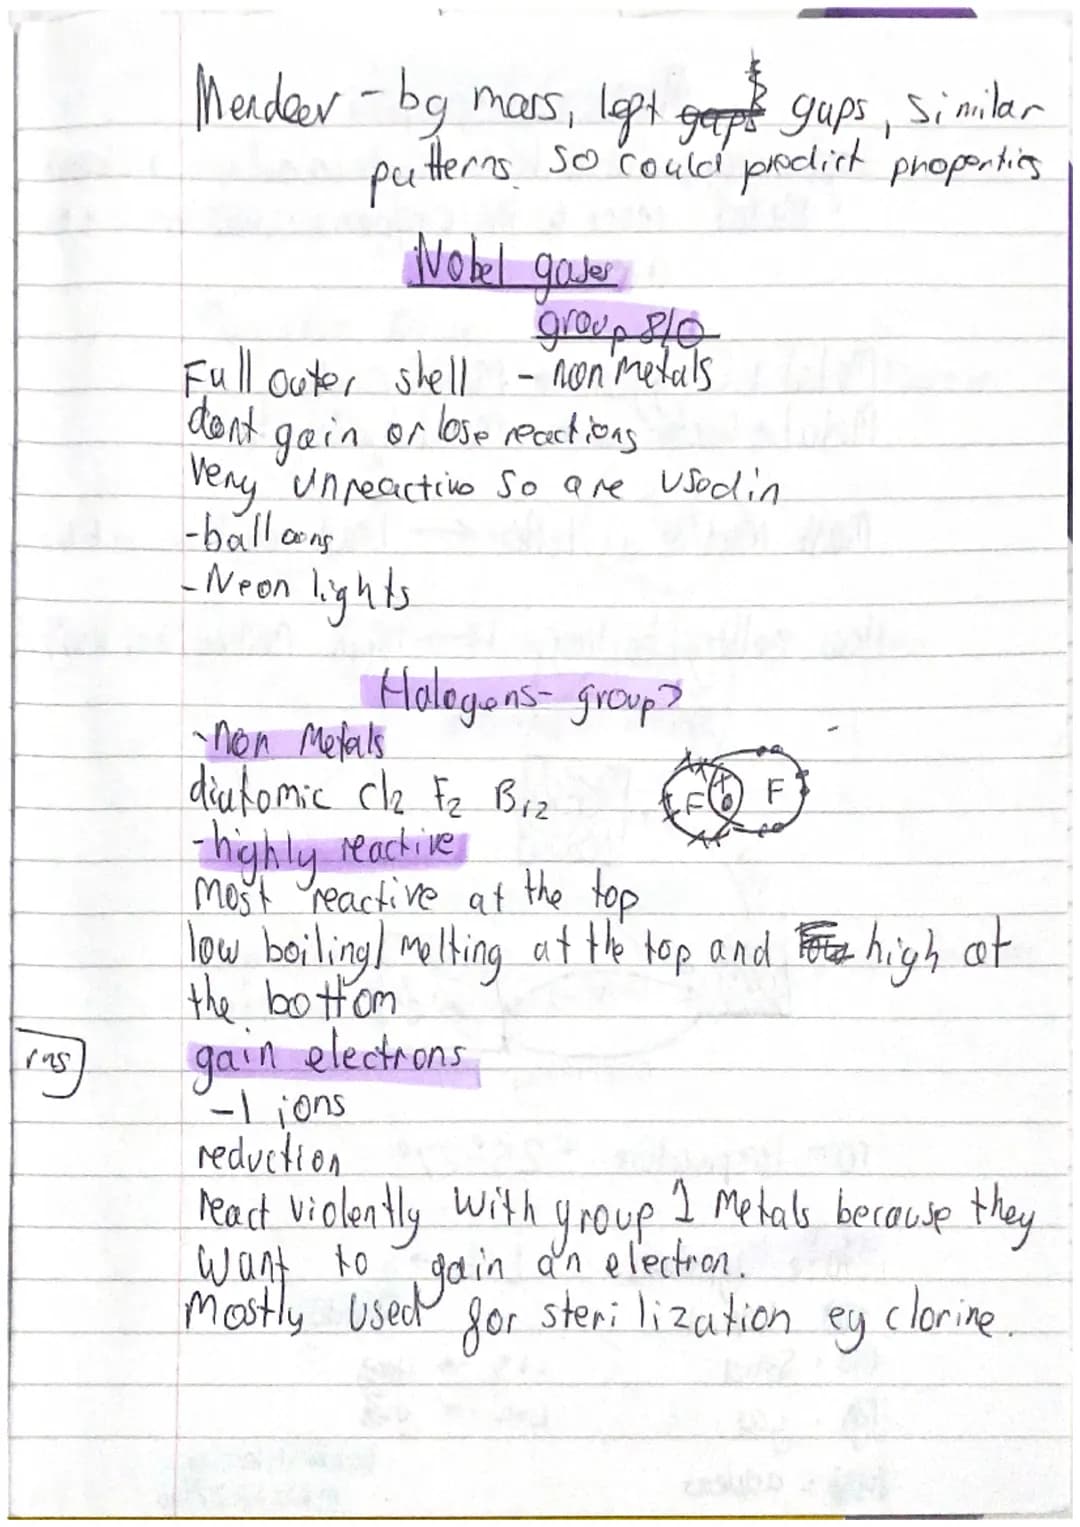 Mendeer - by mass, left gaps gaps, similar
patterns. so could predict properties
Nobel gases
group 8/0
Full outer shell - non metals
dont gain or lose reactions
very unreactive so are used in
-balloons
-Neon lights
Halogens- group 7
-non Metals
diatomic Cl2 F2 Br2
F F
-highly reactive
most reactive at the top
low boiling/melting at the top and high at
the bottom
rns
gain electrons
-1 ions
reduction
react violently with group 1 Metals because they
want to gain an electron.
Mostly used for sterilization eg clorine.